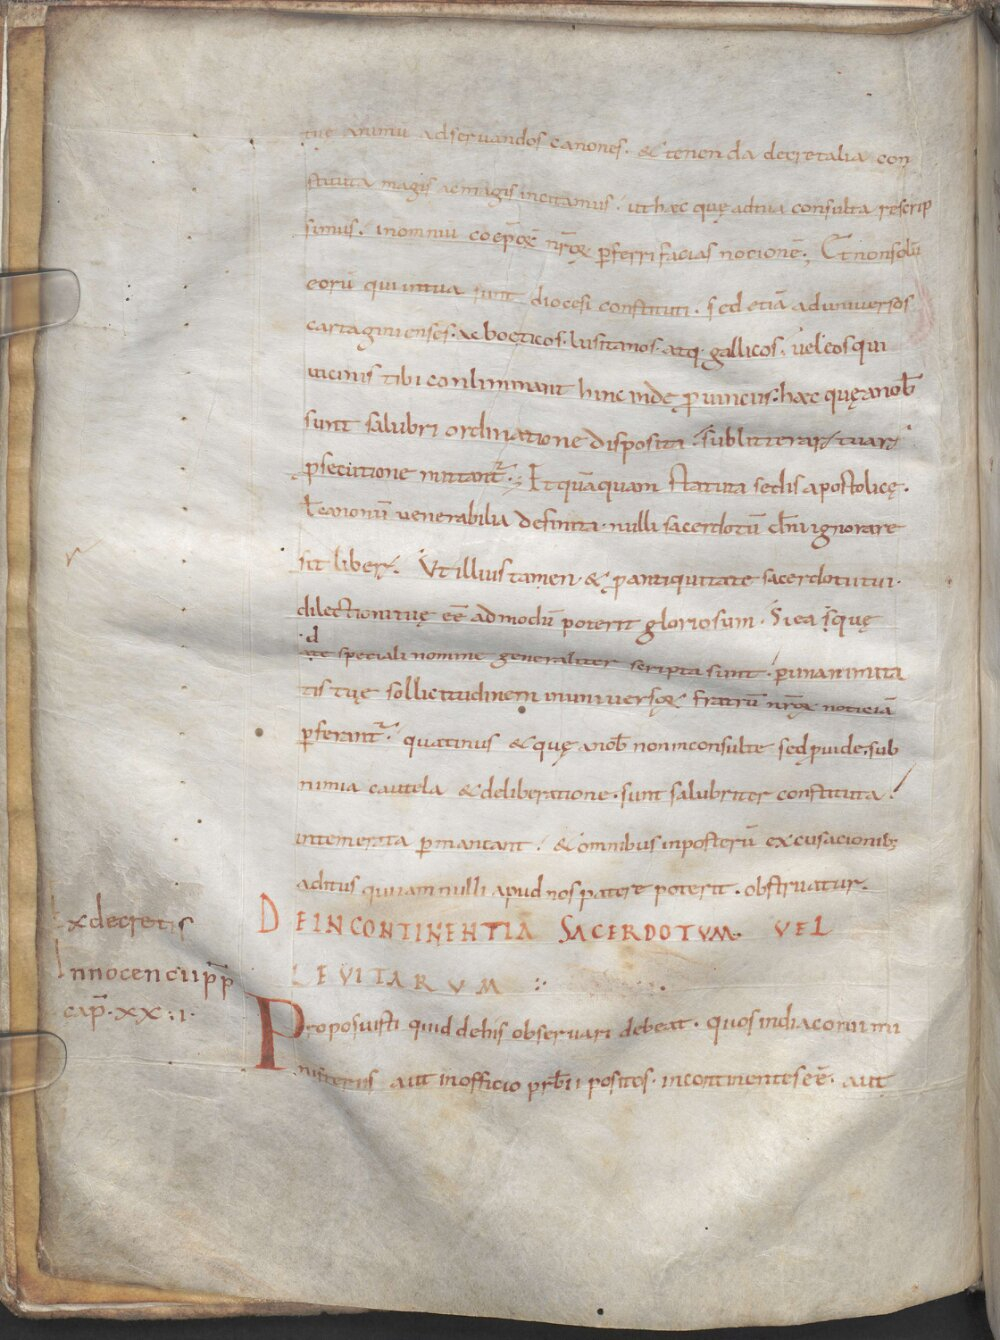 tuę animū adseruandos canones. & tenenda decretalia con
stituta magis ac magis incitamus. ut hæc quę ad tua consulta rescrip
simus. in omniū coep̄oꝝ nr̄oꝝ ꝑferri facias nocionē. Et non solū
eorū qui in tua sunt diocesi constituti. sed etiā ad uniuersos
cartaginienses. ac boeticos. lusitanos. atq. gallicos. uel eos qui
uicinis tibi conliminant hinc inde ꝓuinciis. hæc quę a nob̄
sunt salubri ordinatione disposita. sub litterarū tuarū
ꝓsecutione mittant᷑. Et quāquam statuta sedis apostolicę.
ł canonū uenerabilia definita. nulli sacerdotū dn̄i ignorare
sit liberū. Utilius tamen. & ꝓ antiquitate sacerdotii tui.
dilectioni tuę eē admodū poterit gloriosum. Si ea quę
.d
ate speciali nomine generaliter scripta sunt. ꝑ unanimita
tis tuę sollicitudinem in uniuersoꝝ fratrū nr̄oꝝ noticiā
ꝑferant᷑. quatinus & quę a nob̄ non inconsulte sed ꝓuide. sub
nimia cautela & deliberatione. sunt salubriter constituta.
intemerata ꝑmaneant. & omnibus in posterū excusacionib;
aditus qui iam nulli apud nos patere poterit. obstruatur.
DE INCONTINENTIA SACERDOTVM. VEL
LEVITARVM
Ex decretis
Innocencii pp̄
cap̄. XX:I.
Proposuisti quid de his obseruari debeat. quos in diaconii mi
nisteriis aut in officio pr̄bīi positos. incontinentes eē. aut